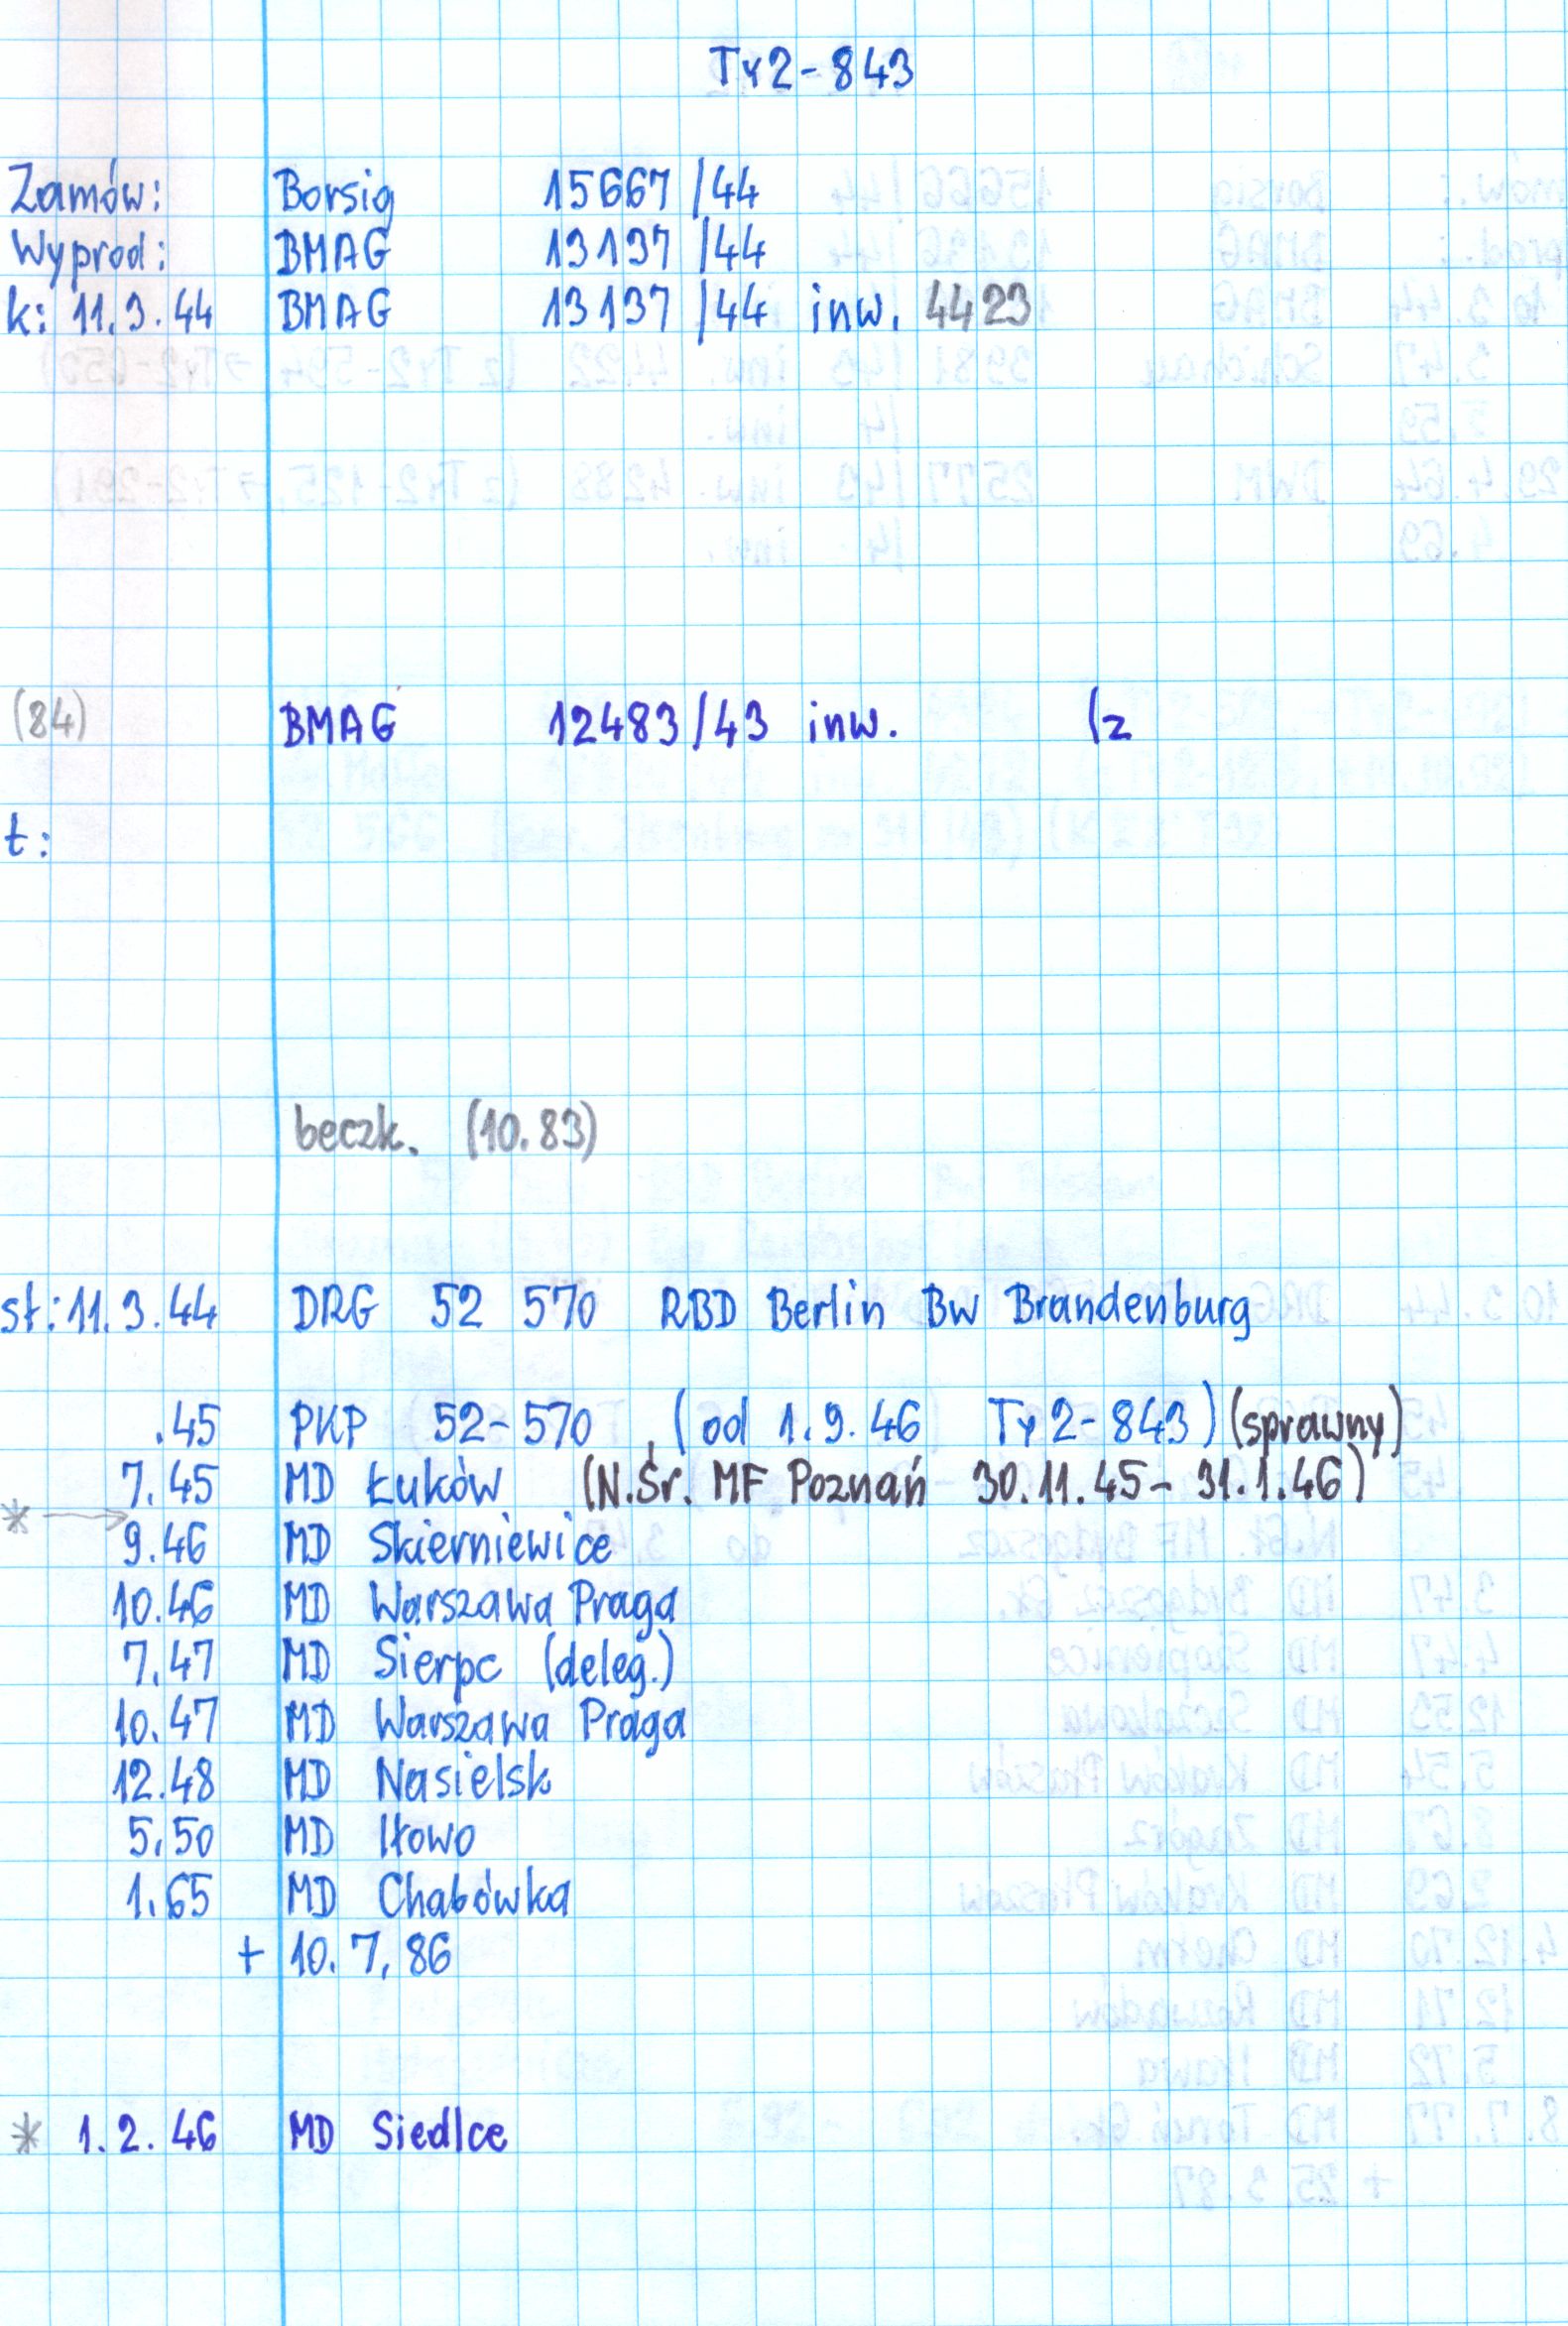 Ty2-843
Zamów: Borsig 15667/44
Wyprod: BMAG 13137/44
k: 11.3.44 BMAG 13137/44 inw. 4423
(84) BMAG 12483/43 inw. (z
t:
beczk. (10.83)
st: 11.3.44 DRG 52 570 RBD Berlin Bw Brandenburg
.45 PKP 52-570 (od 1.9.46 Ty2-843) (sprawny)
7.45 MD Łuków (N.Śr. MF Poznań 30.11.45 - 31.1.46)
* →
9.46 MD Skierniewice
10.46 MD Warszawa Praga
7.47 MD Sierpc (deleg.)
10.47 MD Warszawa Praga
12.48 MD Nasielsk
5.50 MD Iłowo
1.65 MD Chabówka
+ 10.7.86
* 1.2.46 MD Siedlce